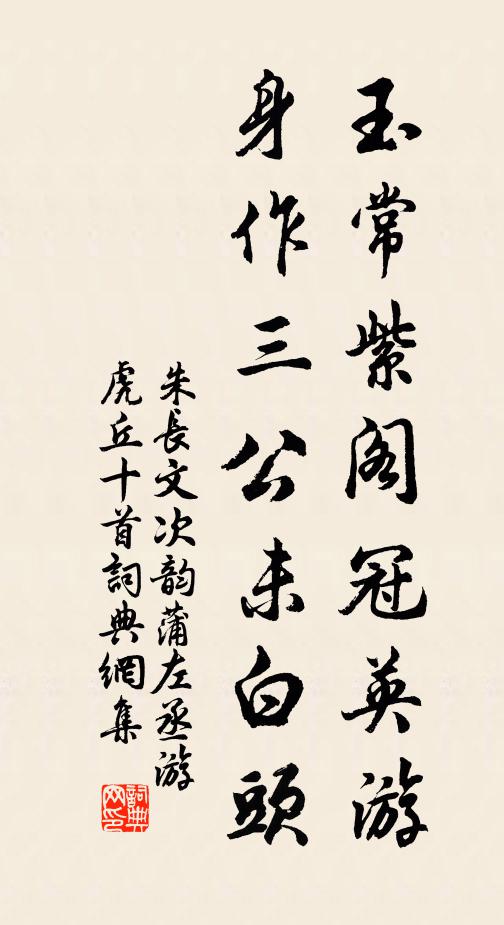 玉常紫阁冠英游
身作三公未白頭
朱長文次韵蒲左丞游
虎丘十首詞典網集